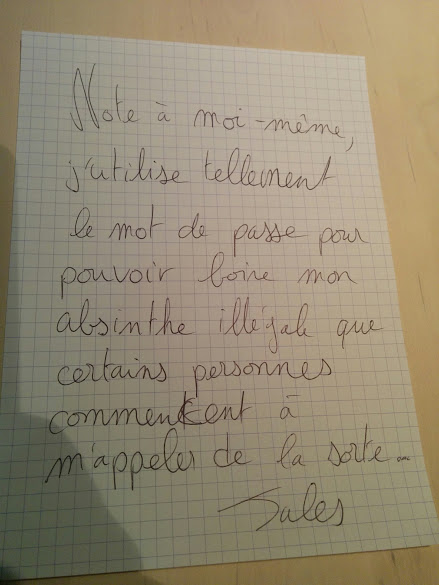 Note à moi-même,
j'utilise tellement
le mot de passe pour
pouvoir boire mon
absinthe illégale que
certains personnes
commencent à
m'appeler de la sorte...
Jules